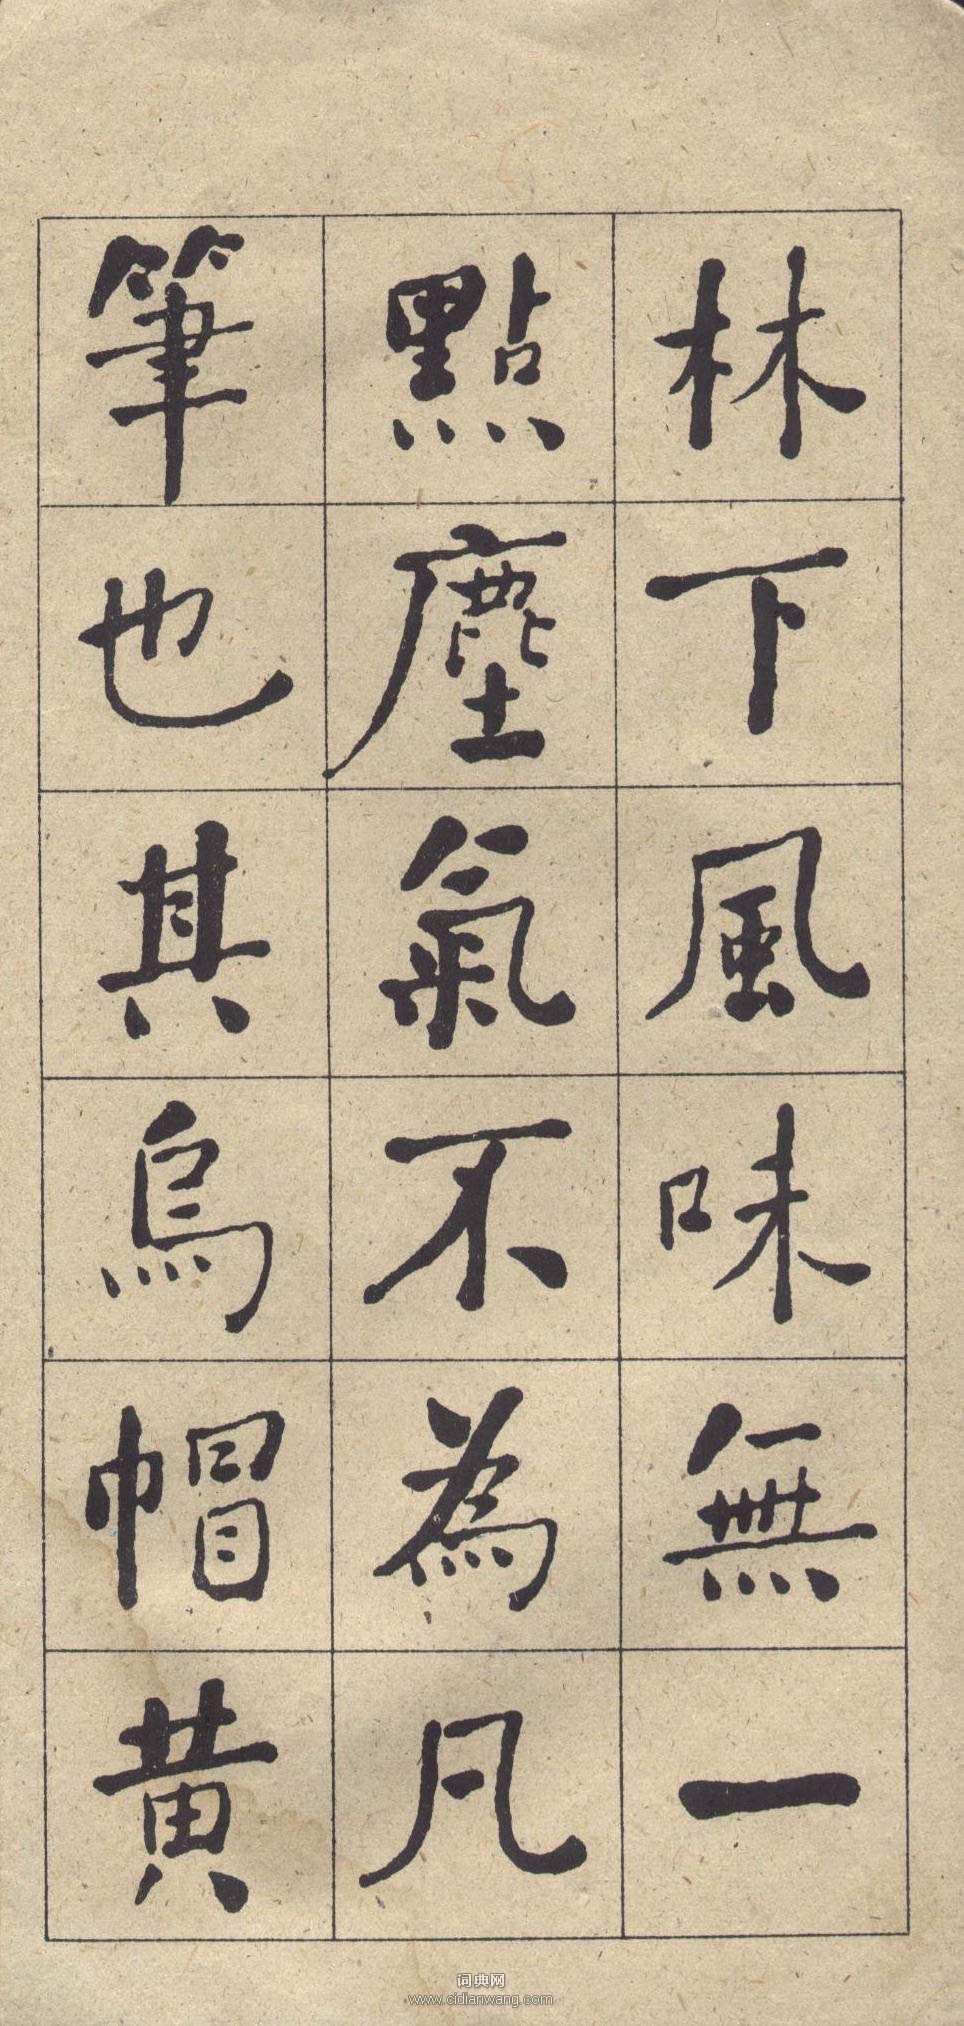 林下風味無一
點塵氣不為凡
筆也其烏帽黄
词典网
www.cidianwang.com